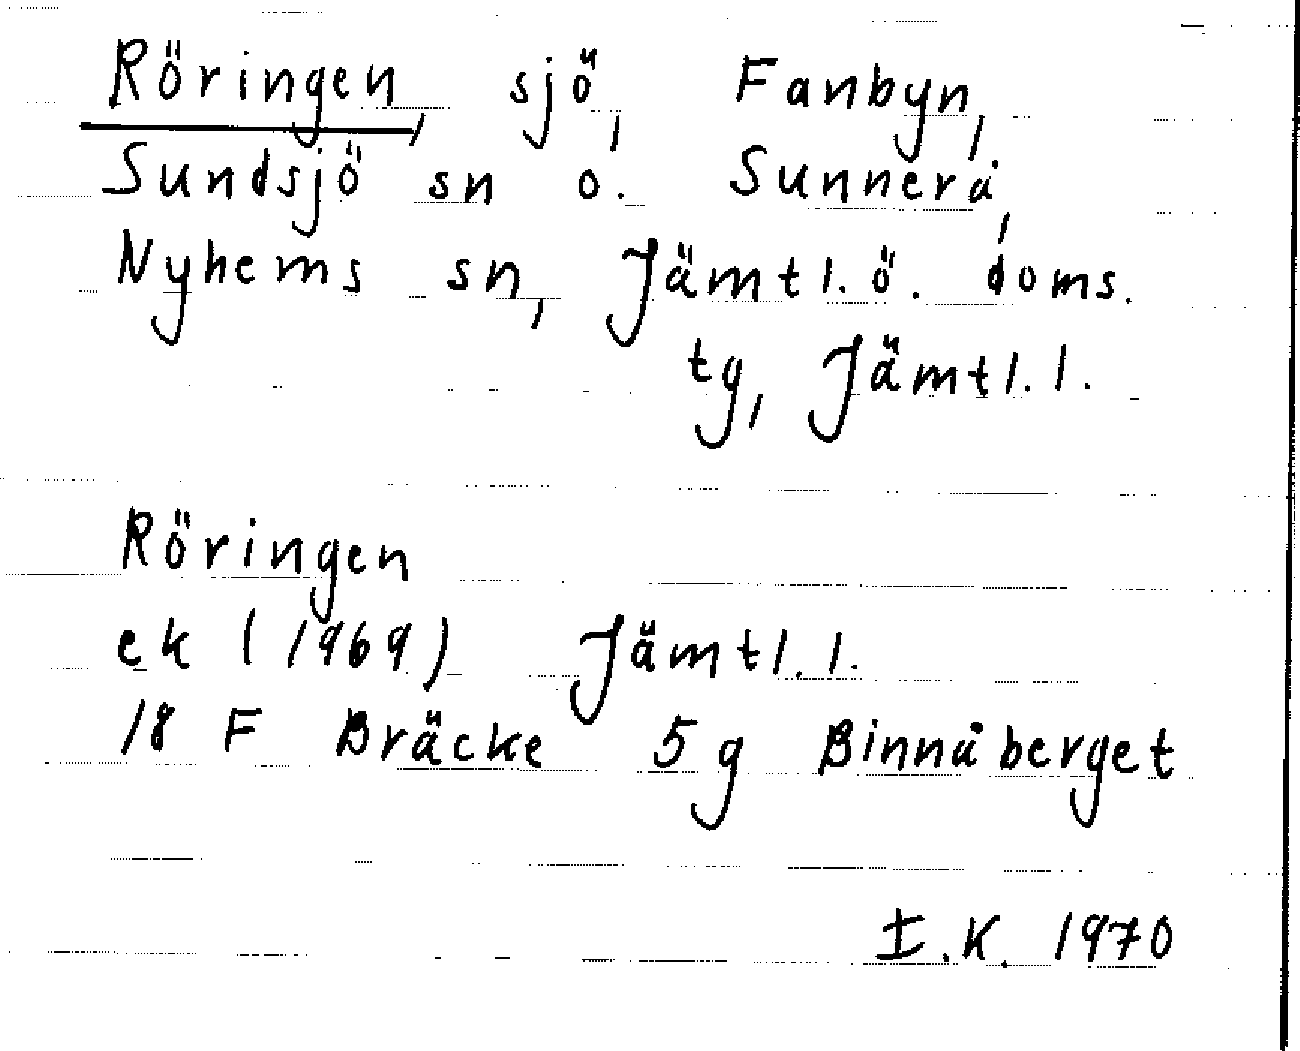 Röringen, sjö, Fanbyn,
Sundsjö sn o. Sunnerå,
Nyhems sn, Jämtl. ö. doms.
tg, Jämtl. l.
Röringen
ek (1969) Jämtl. l.
18 F Bräcke 5 g Binnåberget
I.K. 1970